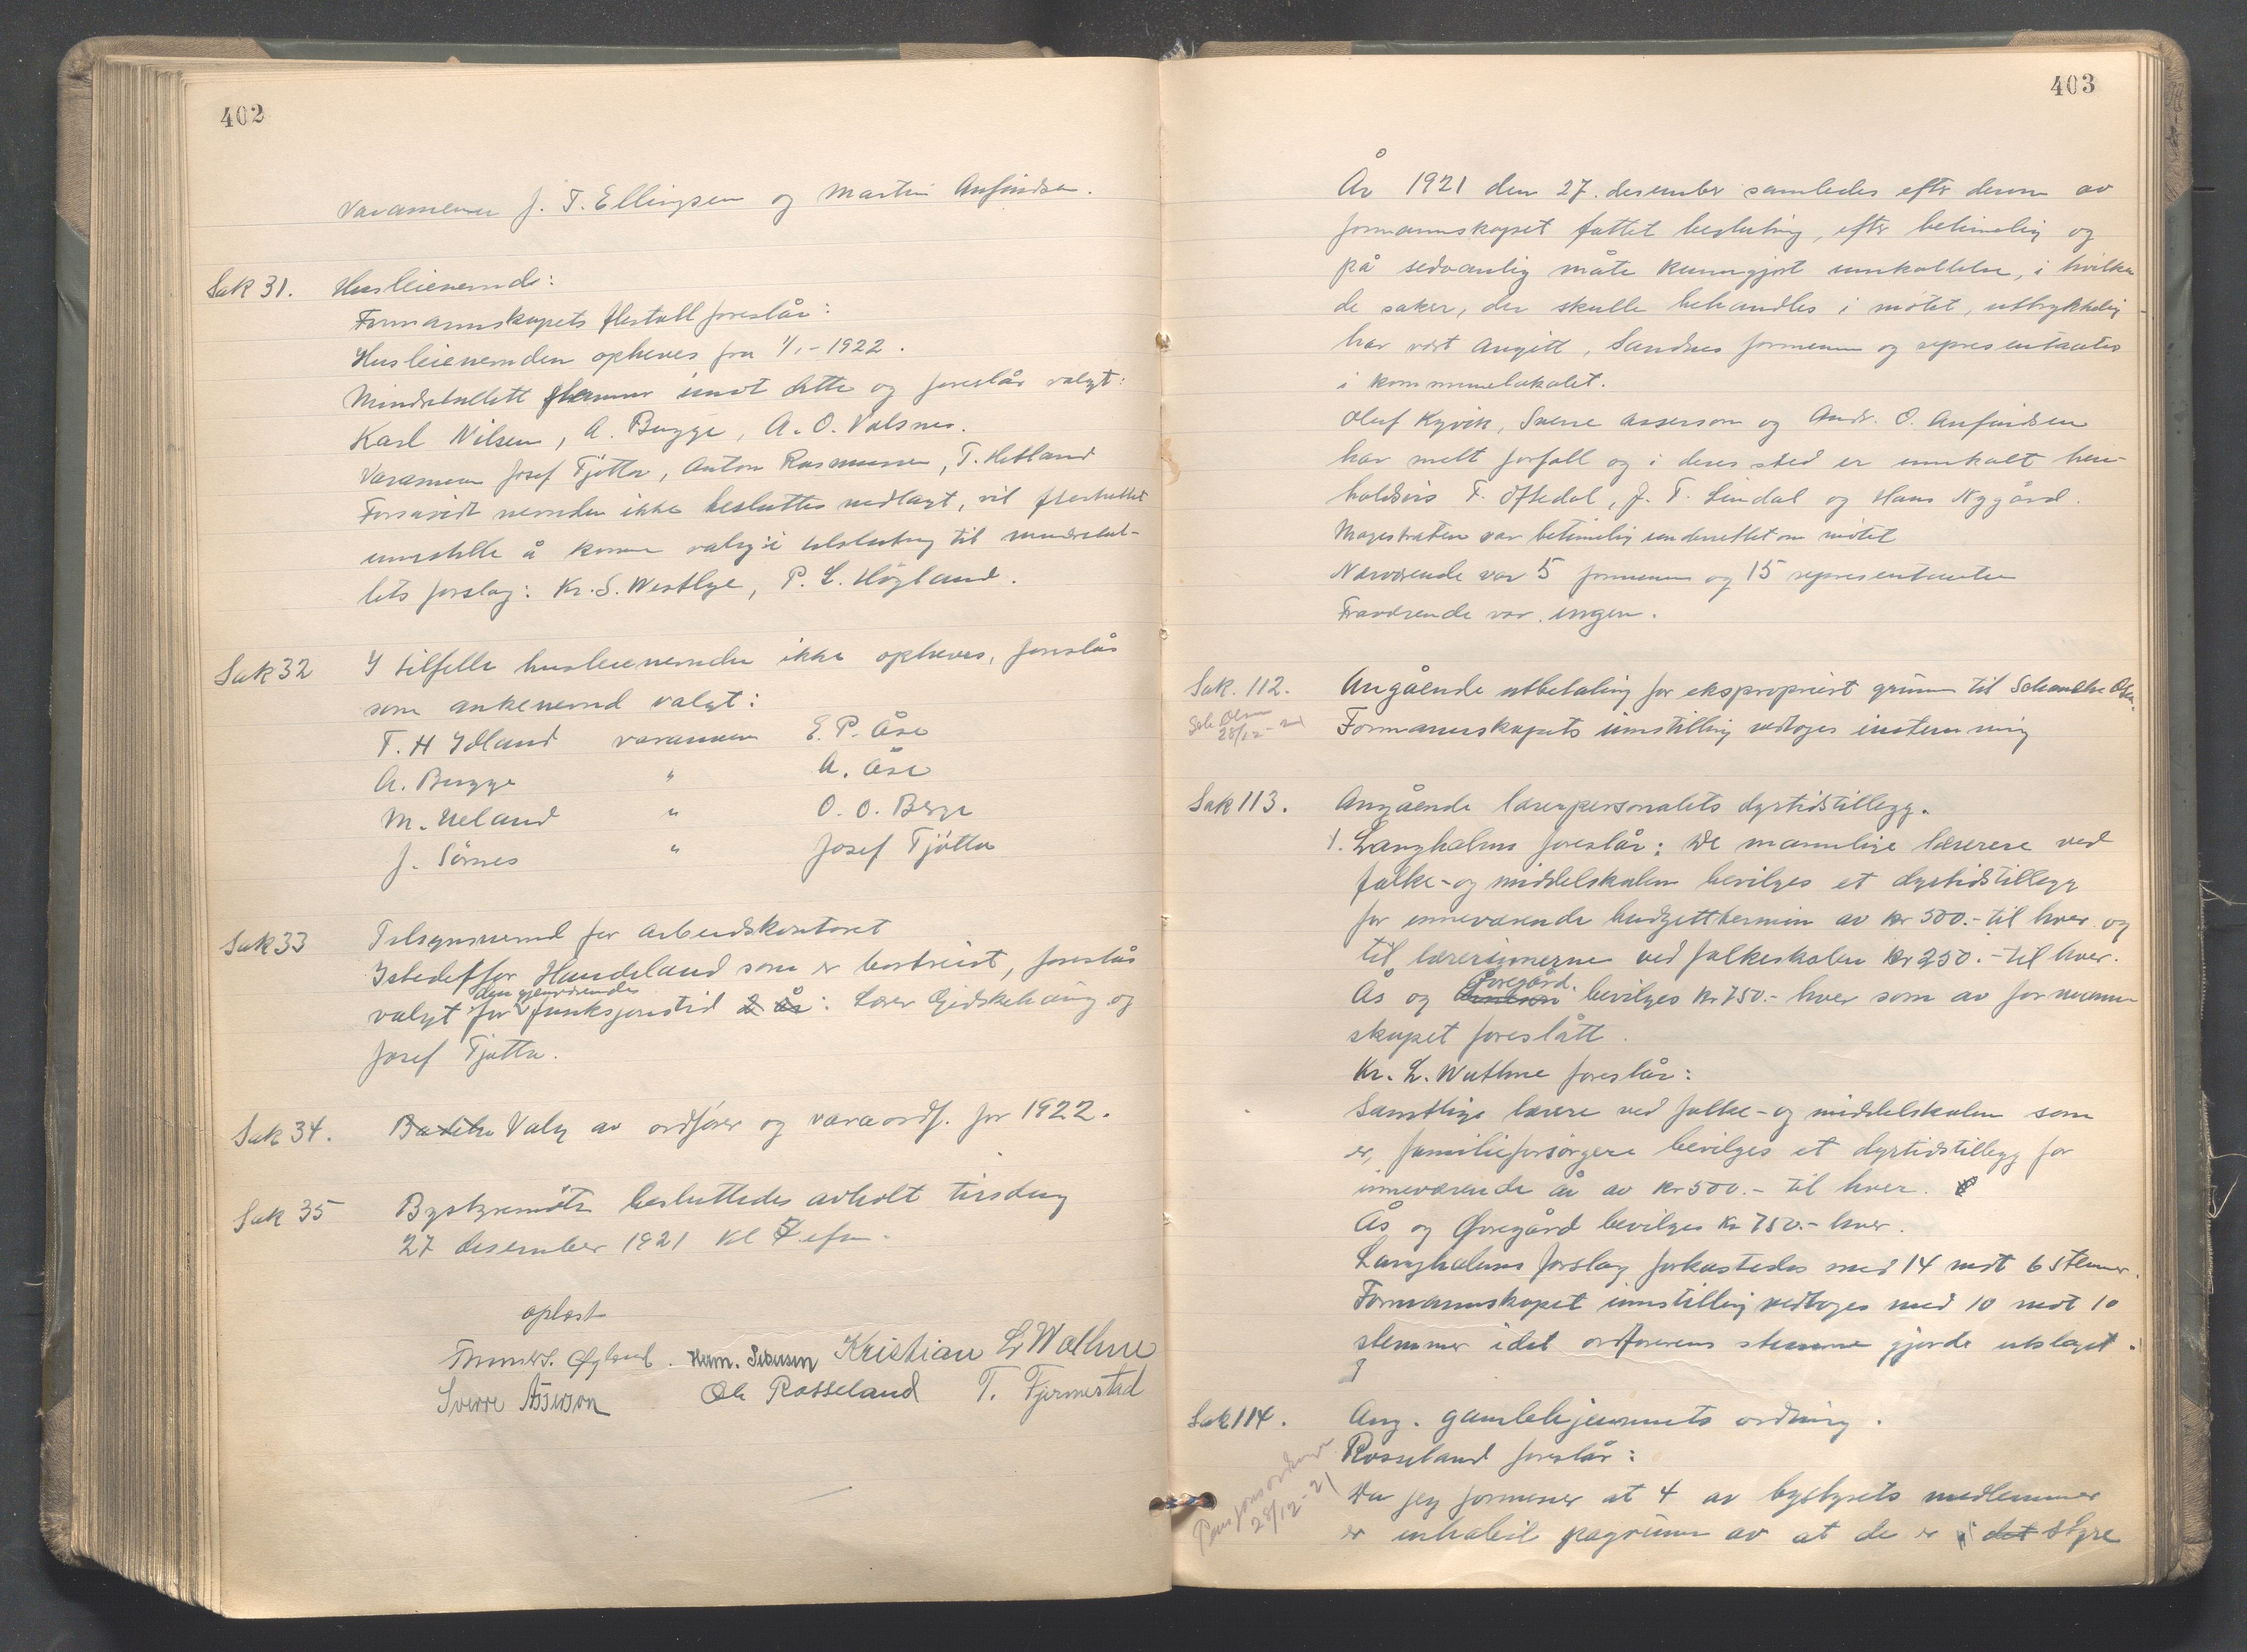 402
Varamenn J. T. Ellingsen og Martin Anfindsen.
Sak 31. Husleienemnda:
Formannskapets flertall foreslår:
Husleienemnden opheves fra 1/1-1922.
Mindretallet stemmer imot dette og foreslår valgt:
Karl Nilsen, A. Bugge, A. O. Valsnes.
Varamenn Josef Tjötta, Anton Rasmussen, T. Hetland
Forsavidt nemnden ikke besluttes nedlagt, vil flertallet
innstille å komme valgt i tilslutning til mindretal-
lets forslag: Kr. S. Westlye, P. L. Högland.
Sak 32 I tilfelle husleienemnden ikke opheves, foreslås
som ankenemnd valgt:
T. H Idland varamenn E. P. Åse
A. Bugge " A. Åse
M. Ueland " O. O. Berge
J. Sörnes " Josef Tjötta
Sak 33 Tilsynsnemnd for arbeidskontoret
Istedetfor Handeland som er bortreist, foreslås
den gjenværendes
valgt for funksjonstid 2 år: Lærer Gjedskehaug og
Josef Tjøtta.
Sak 34. Valg av ordfører og varaordf. for 1922.
Sak 35 Bystyremöte besluttedes avholt tirsdag
27 desember 1921 kl efm.
oplest
Øgland. Herm. Kristian L Wathne
Sverre Asserson Ole Rosseland T. Fjermestad
403
År 1921 den 27. desember samledes efter derom av
formannskapet fattet beslutning, efter betimelig og
på sedvanlig måte kunngjort innkallelse, i hvilken
de saker, der skulle behandles i møtet, uttrykkelig
har vært angitt, Sandnes formenn og representanter
i kommunelokalet.
Oluf Kyvik, Sverre Asserson og Andr. O. Anfindsen
har melt forfall og i deres sted er innkalt hen-
holdsvis T. Oftedal, J. T. Lindal og Hans Nygård.
Magistraten var betimelig underrettet om møtet
Nærværende var 5 formenn og 15 representanter
Fraværende var ingen.
Sak. 112. Angående utbetaling for ekspropriert grunn til Olsen.
Olsen
28/12-21
Formannskapets innstilling vedtoges enstemmig
Sak 113. Angående lærerpersonalets dyrtidstillegg.
1. Langholms foreslår: De mannlige lærere ved
folke- og middelskolen bevilges et dyrtidstillegg
for inneværende budgettermin av kr 500.- til hver og
til lærerinnerne ved folkeskolen kr 250.- til hver.
Øvregård.
Ås og bevilges kr 750.- hver som av formann-
skapet foreslått.
Kr. L. Wathne foreslår:
Samtlige lærere ved folke- og middelskolen som
er familieforsörgere bevilges et dyrtidstillegg for
inneværende år av kr 500.- til hver.
Ås og Øvregård bevilges kr 750.- hver.
Langholms forslag forkastedes med 14 mot 6 stemmer.
Formannskapets innstilling vedtoges med 10 mot 10
stemmer idet ordførerens stemme gjorde utslaget.
Sak 114. Ang. gamlehjemmets ordning.
28/12-21
Rosseland foreslår:
Da jeg formener at 4 av bystyrets medlemmer
er inhabil pagrunn av at de er i det styre